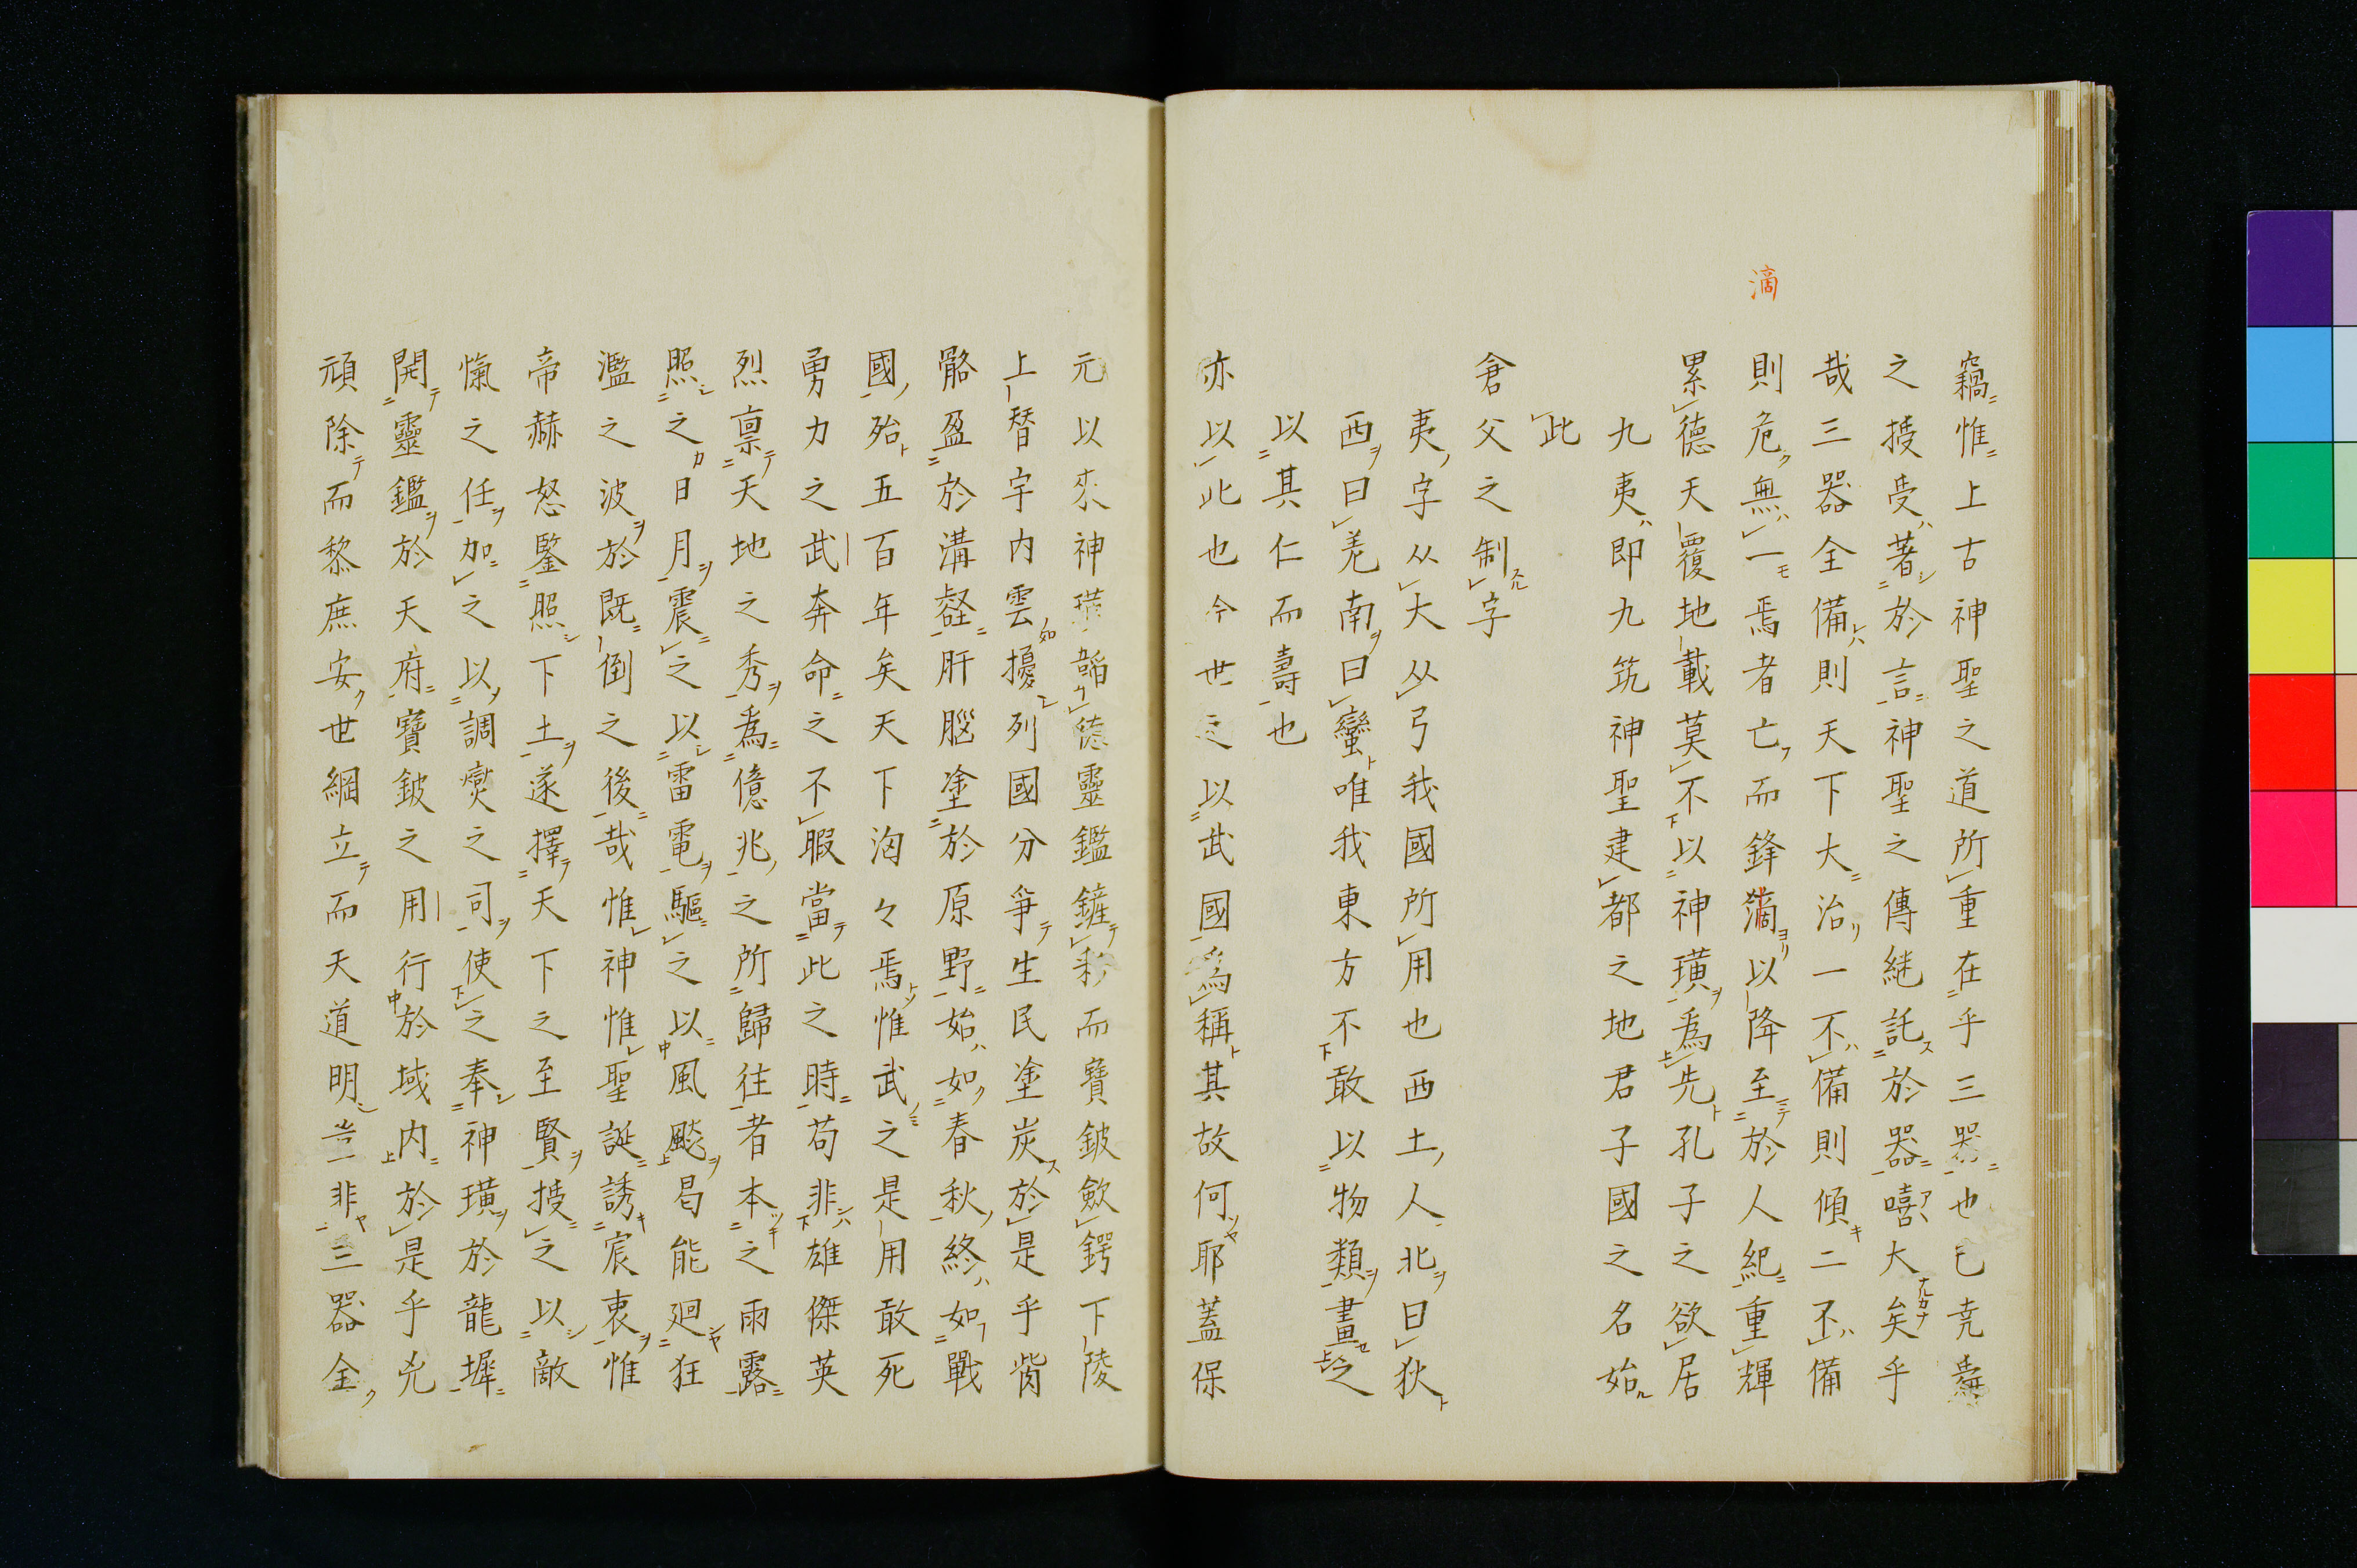 滴
竊惟上古神聖之道所重在乎三器也
之授受著於言神聖之傳継託於器嘻大矣乎
哉三器全備則天下大治一不備則傾二不備
則危無一焉者亡而鋒滴以降至於人紀重輝
累德天覆地載莫不以神璜爲先孔子之欲居
九夷即九筑神聖建都之地君子國之名始
此
倉父之制字
夷字从大从弓我國所用也西土人北曰狄
西曰羌南曰蠻唯我東方不敢以物類畫之
以其仁而壽也
亦以此也今世以武國爲稱其故何耶蓋保
元以來神璜韜德靈鑑鏟彩而寶鈹歛鍔下陵
上替宇内雲擾列國分爭生民塗炭於是乎胔
骼盈於溝壑肝腦塗於原野始如春秋終如戰
國殆五百年矣天下洶々焉惟武之是用敢死
勇力之武奔命之不暇當此之時苟非雄傑英
烈禀天地之秀爲億兆之所歸往者本之雨露
照之日月震之以雷電驅之以風颷曷能廻狂
濫之波於既倒之後哉惟神惟聖誕誘宸衷惟
帝赫怒鑒照下土遂擇天下之至賢授之以敵
愾之任加之以調爕之司使之奉神璜於龍墀
開靈鑑於天府寶鈹之用行於域内於是乎兇
頑除而黎庶安世綱立而天道明豈非三器全